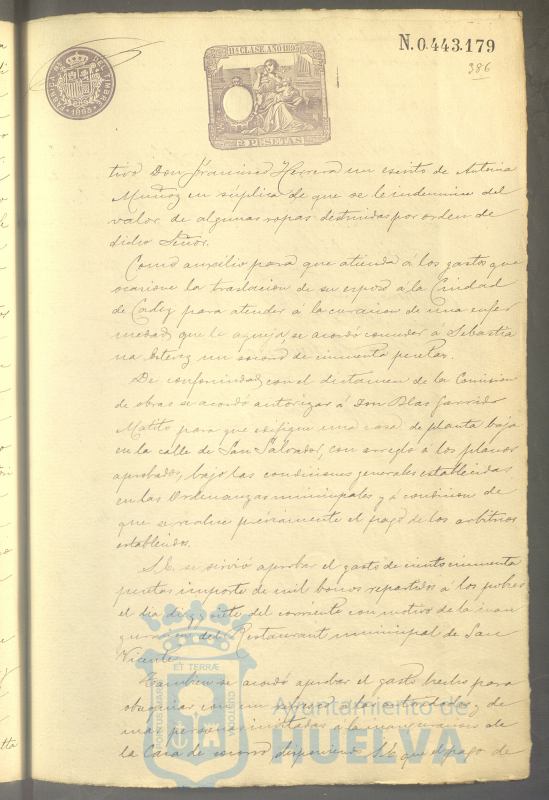 N. 0.443.179
386
FÁBRICA DEL TIMBRE
1895
11ª CLASE. AÑO 1895
2 PESETAS
tivo Don Francisco Herrera un escrito de Antonia
Muñoz en súplica de que se le indemnice del
valor de algunas ropas destruidas por orden de
dicho Señor.
Como auxilio para que atienda á los gastos que
ocasione la traslacion de su esposo á la Ciudad
de Cadiz para atender á la curacion de una enfer
medad que le aqueja, se acordó conceder á Sebastia
na un socorro de cincuenta pesetas.
De conformidad con el dictamen de la Comision
de obras se acordó autorizar á Don Blas Garrido
Matito para que edifique una casa de planta baja
en la calle de San Salvador, con arreglo á los planos
aprobados, bajo las condiciones generales establecidas
en las Ordenanzas municipales y á condicion de
que se realice préviamente el pago de los arbitrios
establecidos.
S.E. se sirvió aprobar el gasto de ciento cincuenta
pesetas importe de mil bonos repartidos á los pobres
el dia del corriente con motivo de la inau
guracion del Restaurant municipal de San
Vicente.
Tambien se acordó aprobar el gasto hecho para
obsequiar con un refresco á las autoridades y de
mas personas invitadas á la inauguracion de
la Casa de socorro disponiendo S.E. que el pago de
PORTUS MARIS ET TERRÆ CUSTODIA
Ayuntamiento de
HUELVA